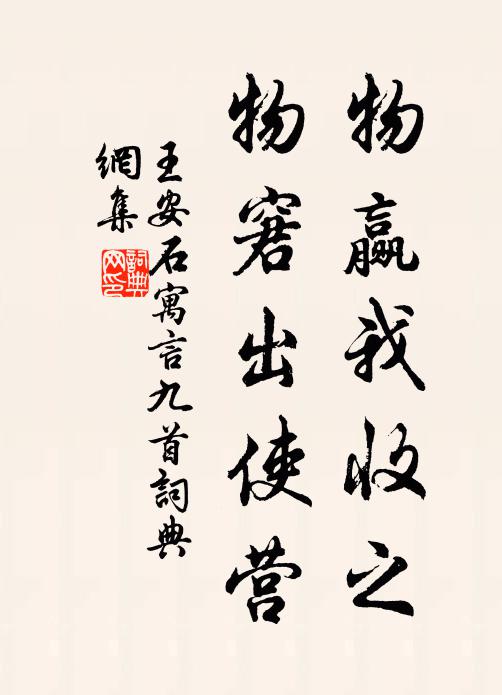 物赢我收之
物窘出使营
王安石寓言九首詞典
網集
詞典网印